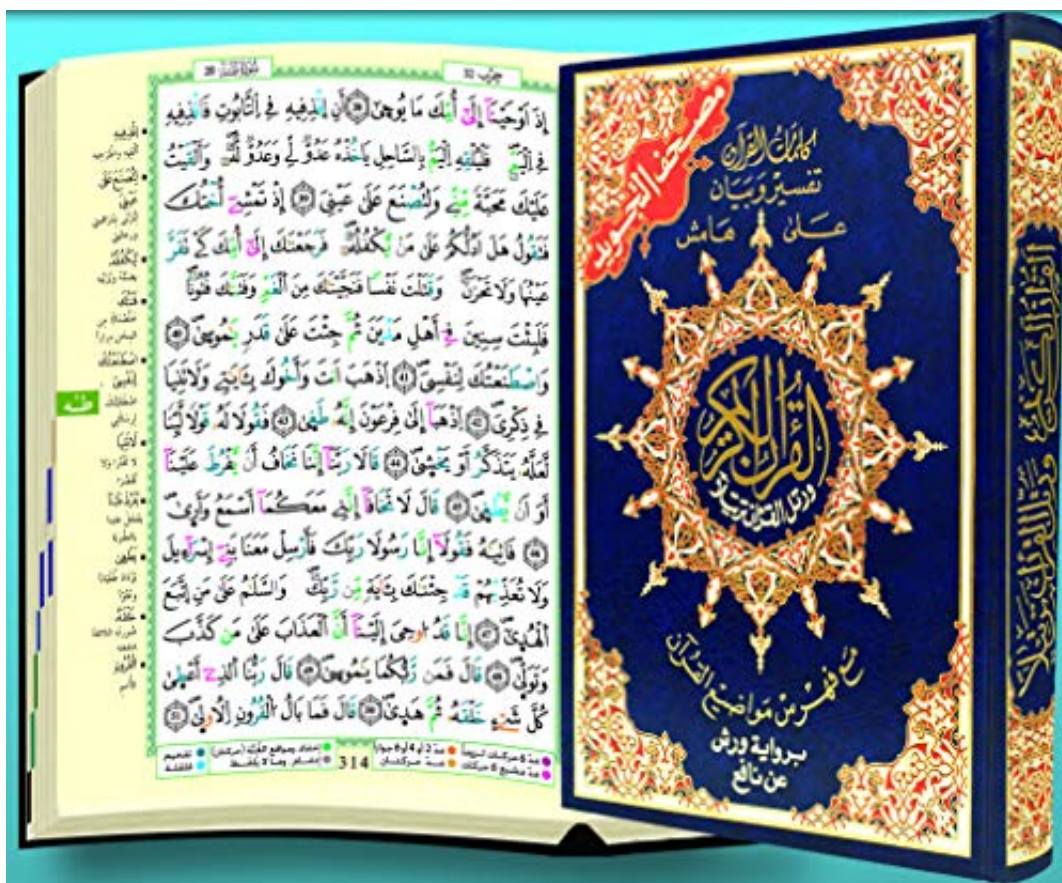 حزب 32
سورة طه 20
إِذَ اَوْحَيْنَآ إِلَىٰٓ أُمِّكَ مَا يُوحَىٰٓ أَنِ اِقْذِفِيهِ فِي اِلتَّابُوتِ فَاقْذِفِيهِ
فِي اِلْيَمِّ فَلْيُلْقِهِ اِلْيَمُّ بِالسَّاحِلِ يَاخُذْهُ عَدُوٌّ لِّي وَعَدُوٌّ لَّهُۥ وَأَلْقَيْتُ
عَلَيْكَ مَحَبَّةً مِّنِّے وَلِتُصْنَعَ عَلَىٰ عَيْنِيَ إِذْ تَمْشِےٓ أُخْتُكَ
فَتَقُولُ هَلَ اَدُلُّكُمْ عَلَىٰ مَنْ يَّكْفُلُهُۥ فَرَجَعْنَٰكَ إِلَىٰٓ أُمِّكَ كَے تَقَرَّ
عَيْنُهَا وَلَا تَحْزَنَ وَقَتَلْتَ نَفْسًا فَنَجَّيْنَٰكَ مِنَ اَلْغَمِّ وَفَتَنَّٰكَ فُتُونًا
فَلَبِثْتَ سِنِينَ فِےٓ أَهْلِ مَدْيَنَ ثُمَّ جِئْتَ عَلَىٰ قَدَرٍ يَٰمُوسَىٰ
وَاصْطَنَعْتُكَ لِنَفْسِيَ اَذْهَبَ اَنتَ وَأَخُوكَ بِـَٔايَٰتِے وَلَا تَنِيَا
فِي ذِكْرِيَ اَذْهَبَآ إِلَىٰ فِرْعَوْنَ إِنَّهُۥ طَغَىٰ فَقُولَا لَهُۥ قَوْلًا لَّيِّنًا
لَّعَلَّهُۥ يَتَذَكَّرُ أَوْ يَخْشَىٰ قَالَا رَبَّنَآ إِنَّنَا نَخَافُ أَنْ يَّفْرُطَ عَلَيْنَآ
أَوَ اَنْ يَّطْغَىٰ قَالَ لَا تَخَافَآ إِنَّنِے مَعَكُمَآ أَسْمَعُ وَأَرَىٰ
فَاتِيَٰهُ فَقُولَآ إِنَّا رَسُولَا رَبِّكَ فَأَرْسِلْ مَعَنَا بَنِےٓ إِسْرَآءِيلَ
وَلَا تُعَذِّبْهُمْ قَدْ جِئْنَٰكَ بِـَٔايَةٍ مِّن رَّبِّكَ وَالسَّلَٰمُ عَلَىٰ مَنِ اِتَّبَعَ
اَلْهُدَىٰٓ إِنَّا قَدُ اوحِيَ إِلَيْنَآ أَنَّ اَلْعَذَابَ عَلَىٰ مَن كَذَّبَ
وَتَوَلَّىٰ قَالَ فَمَن رَّبُّكُمَا يَٰمُوسَىٰ قَالَ رَبُّنَا اَلَّذِےٓ أَعْطَىٰ
كُلَّ شَےْءٍ خَلْقَهُۥ ثُمَّ هَدَىٰ قَالَ فَمَا بَالُ اُلْقُرُونِ اِلُاولَىٰ
314
طه
مصحف التجويد
كلمات القرآن
تفسير وبيان
على هامش
القرآن الكريم
ورتل القرآن ترتيلا
مع فهرس مواضيع القرآن
برواية ورش
عن نافع
القرآن الكريم ورتل القرآن ترتيلا